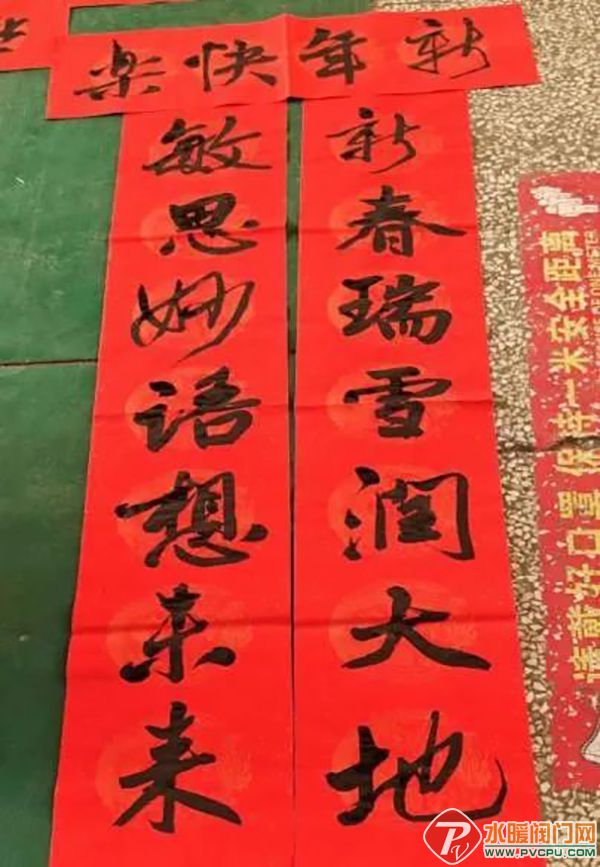 新年快楽
新春瑞雪润大地
敏思妙语想未来
请戴好口罩 保持一米安全距离
水暖阀门网
WWW.PVCPU.COM